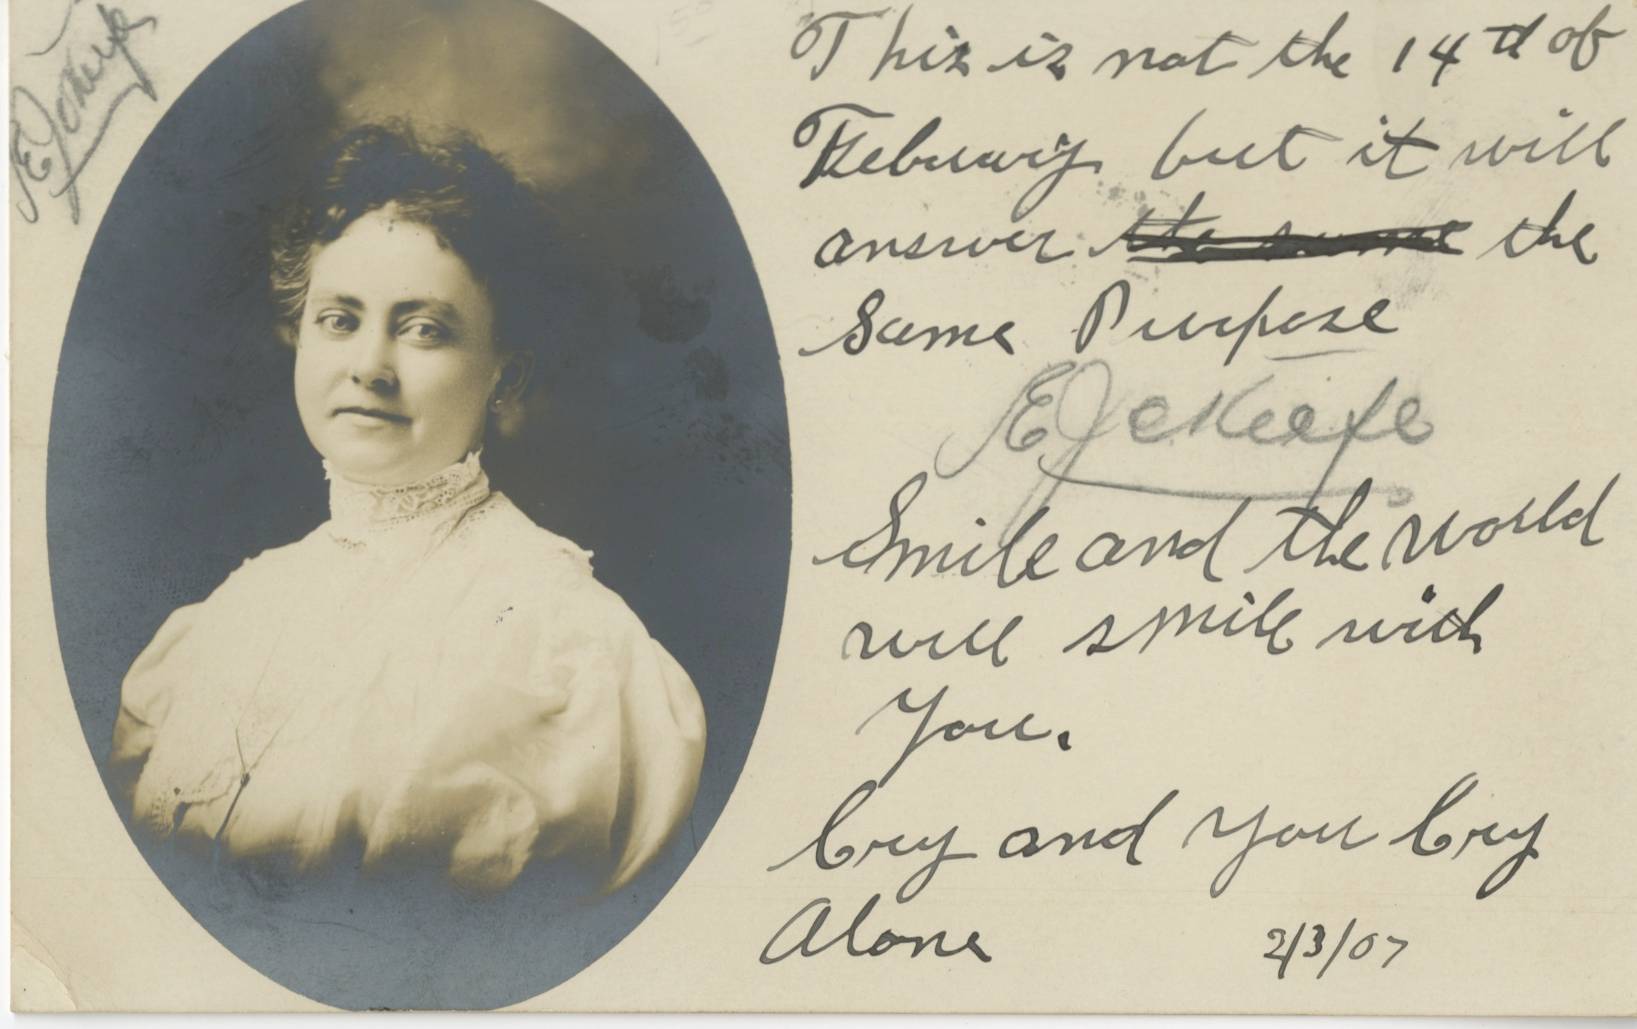 This is not the 14th of
Febuary but it will
answer the same the
Same Purpose
E J O'Keefe
Smile and the world
will smile with
You.
Cry and you Cry
Alone
2/3/07